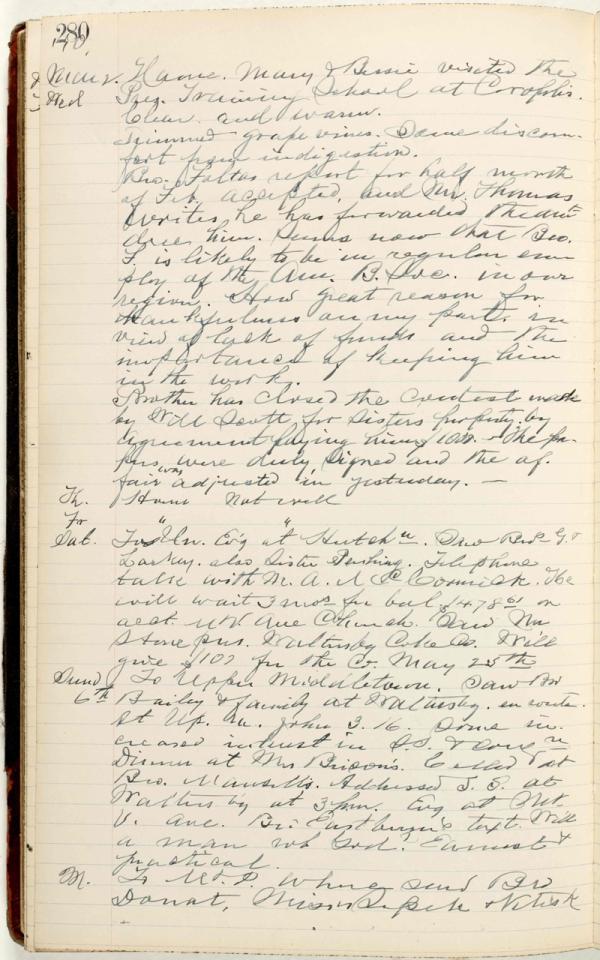 280
Mar 2. Home. Mary & Bessie visited the
Wed Preg. Training School at Coropolis.
Clear and warm.
Trimmed grape vines. Some discom-
fort from indigestion.
Bro. report for half month
of Feb. accepted, and Mr. Thomas
writes he has forwarded the amt
due him. Seems now that Bro.
F. is likely to be in regular em-
ploy of the Am. B. Soc. in our
region. How great reason for
thankfulness on my part, in
view of lack of funds and the
importance of keeping him
in the work.
Brother has closed the contest made
by Will Scott for Sisters property by
agreement paying him $100. - The pa-
pers were duly signed and the af-
fair was adjusted in yesterday. —
Th. Home Not well
Fr
Sat. To Un. Evg at "Hutch". Saw Revs G. &
Larkey. also Sister Pershing. Telephone
talk with M. A. McCormick. He
will wait 3 mos for bal $478 61 on
acct. Ave Church. Saw Wm
Stone pres. Waltersby Coke Co. Will
give $100 for the Co. May 25th
Sund To Upper Middletown. Saw Br
6th Bailey & family at Waltersby. en route.
At Up. M. John 3. 16. Some in-
creased interest in S.S. &
Dinner at Mrs Brison's. Called at
Bro. Mansell's. Addressed S. S. at
Waltersby at 3 p.m. Evg at Mt.
V. Ave. Br. Eastburn's text. "Will
a man rob God." Earnest &
practical.
M. To Mt. P. Where saw Bro
Donat, Miss &